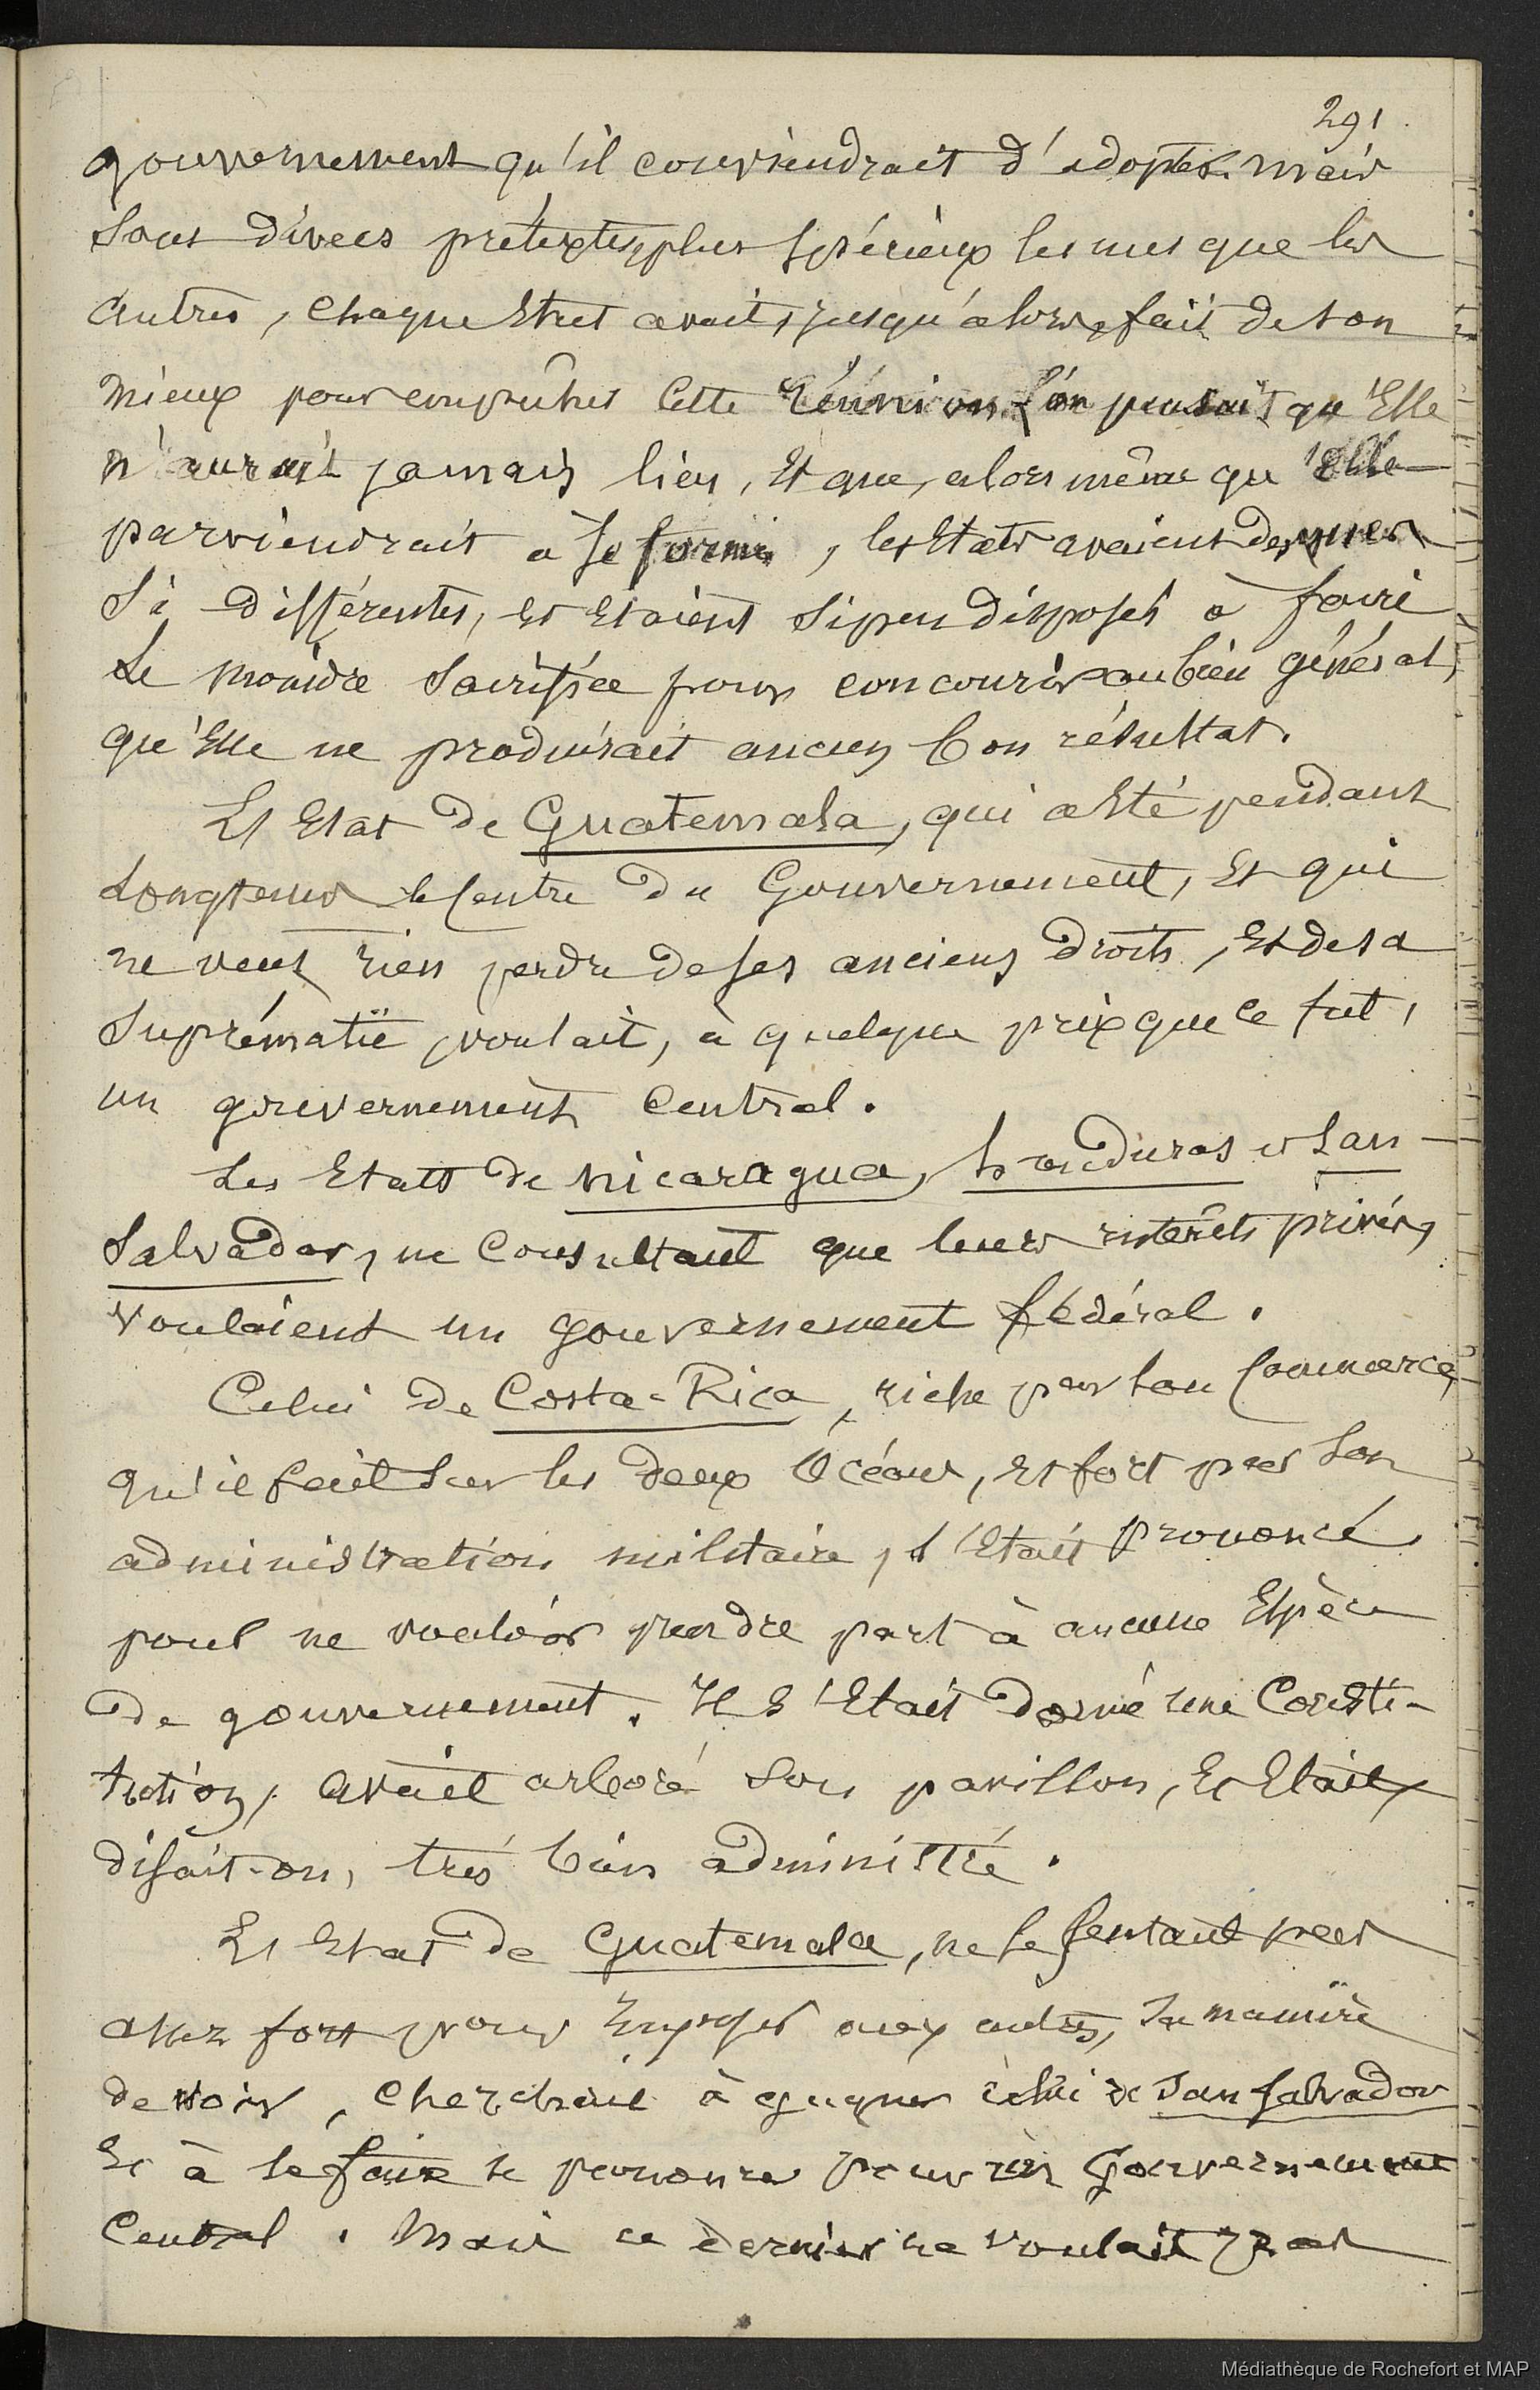 291.
gouvernement qu'il conviendrait d'adopter. mais
sous divers prétextes, plus spécieux les uns que les
autres, chaque Etat avait, jusqu'alors, fait de son
mieux pour empêcher cette réunion. L'on pensait qu'Elle
n'aurait jamais lieu, Et que, alors même qu'Elle
parviendrait à se former, les Etats avaient des vues
si différentes, et Etaient si peu disposés à faire
Le moindre sacrifice pour concourir au bien général,
qu'Elle ne produirait aucun bon résultat.
L'Etat de Guatemala, qui a Eté pendant
Longtems le Centre du Gouvernement, Et qui
ne veut rien perdre de ses anciens droits, Et de sa
suprématie, voulait, à quelque prix que ce fut,
un gouvernement Central.
Les Etats de Nicaragua, honduras et San-
Salvador, ne Consultant que leurs intérêts privés,
voulaient un gouvernement fédéral.
Celui de Costa-Rica, riche par son Commerce,
qu'il fait sur les deux Océans, Et fort par son
administration militaire, s'Etait prononcé
pour ne vouloir prendre part à aucune Espèce
de gouvernement. Il s'Etait donné une Consti-
tution, avait arboré son pavillon, Et Etait,
disait-on, très bien administré.
L'Etat de Guatemala, ne se sentant pas
assez fort pour Imposer aux autres, sa manière
de voir, cherchait à gagner celui de San Salvador
Et à le faire se prononcer pour un Gouvernement
Central. Mais ce dernier ne voulait pas
Médiathèque de Rochefort et MAP